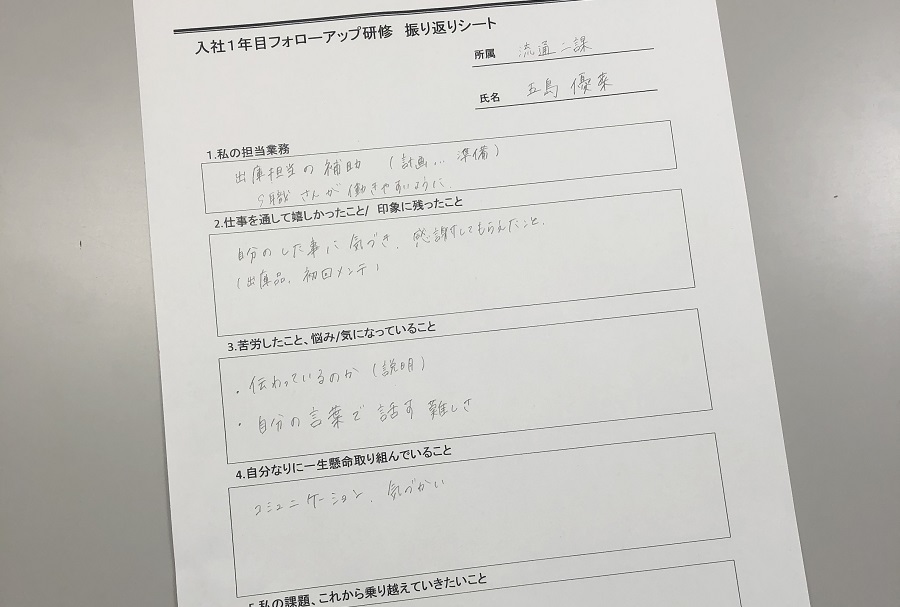 入社1年目フォローアップ研修 振り返りシート
所属 流通二課
氏名 五島 優菜
1.私の担当業務
出庫担当の補助 (計画... 準備)
S職さんが働きやすいように.
2.仕事を通して嬉しかったこと/ 印象に残ったこと
自分のした事に気づき、感謝してもらえたこと.
(出庫品、初回メンテ)
3.苦労したこと、悩み/気になっていること
・伝わっているのか(説明)
・自分の言葉で話す難しさ
4.自分なりに一生懸命取り組んでいること
コミュニケーション、気づかい
5.私の課題、これから乗り越えていきたいこと